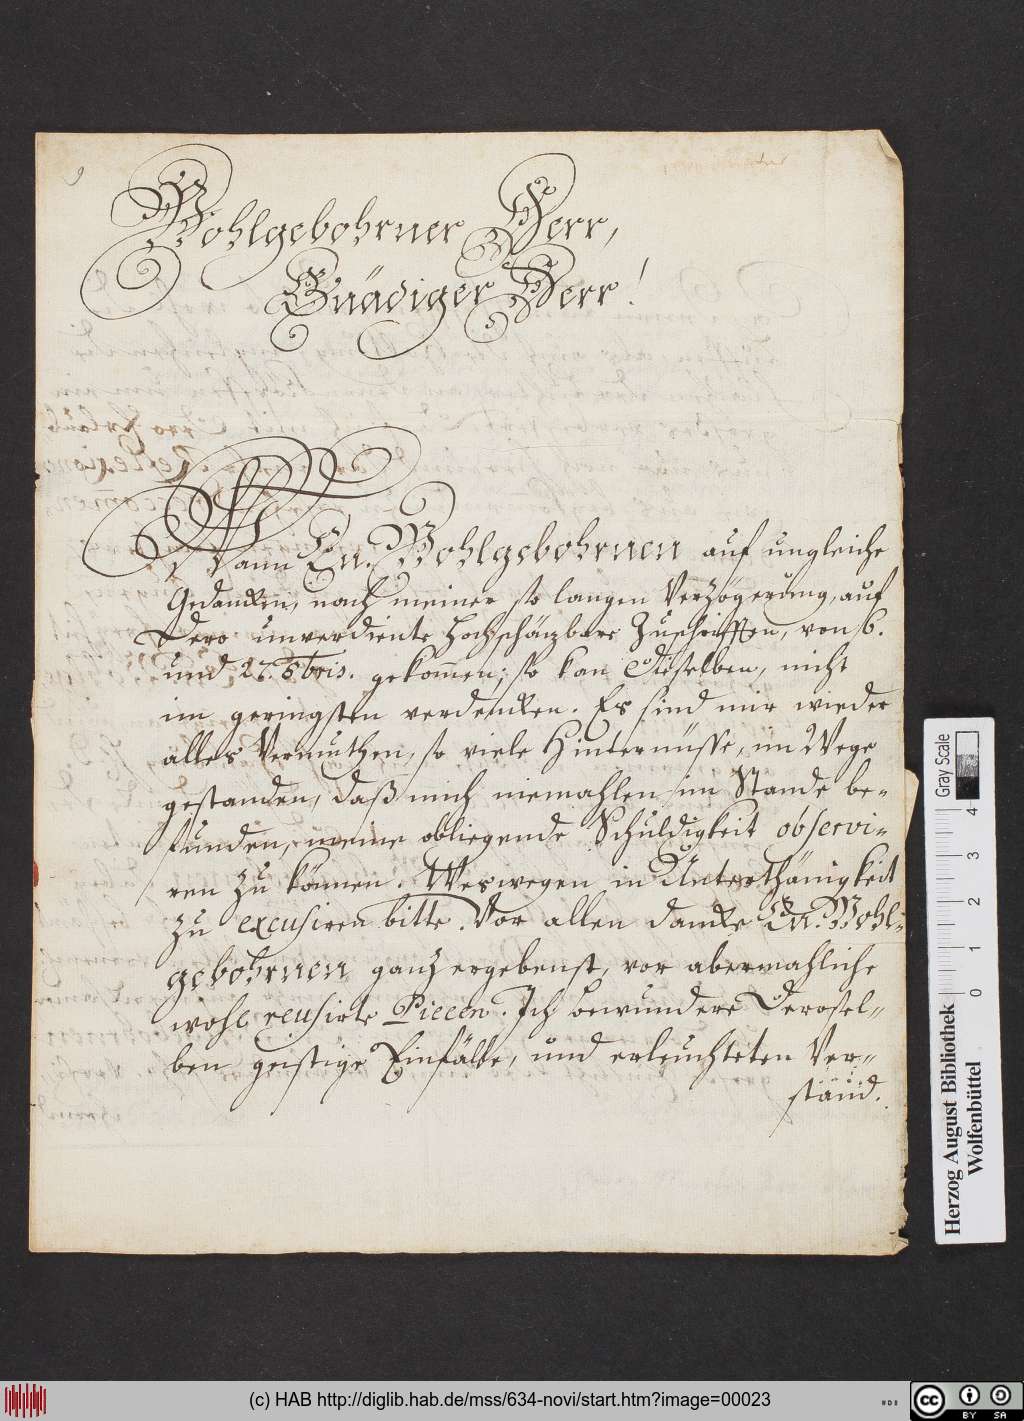 Wohlgebohrner Herr,
Gnädiger Herr!
Wann Ew. Wohlgebohrnen auf ungleiche
Gedancken, nach meiner so langen Verzögerung, auf
Dero unverdiente hochschäzbare Zuschrifften, von 6.
und 27. 8bris. gekom̄en; so kan Dieselben, nicht
im geringsten verdencken. Es sind mir wieder
alles Vermuthen, so viele Hinternüsse, im Wege
gestanden, daß mich niemahlen im Stande be-
funden, meine obliegende Schuldigkeit observi-
ren zu können. Weswegen in Unterthänigkeit
zu excusiren bitte. Vor allen dancke Ew. Wohl-
gebohrnen ganz ergebenst, vor abermahliche
wohl reusirte Piecen. Ich bewundere Derosel-
ben geistige Einfälle, und erleuchteten Ver-
stand.
Gray Scale
0 1 2 3 4
Herzog August Bibliothek
Wolfenbüttel
(c) HAB http://diglib.hab.de/mss/634-novi/start.htm?image=00023
cc BY SA